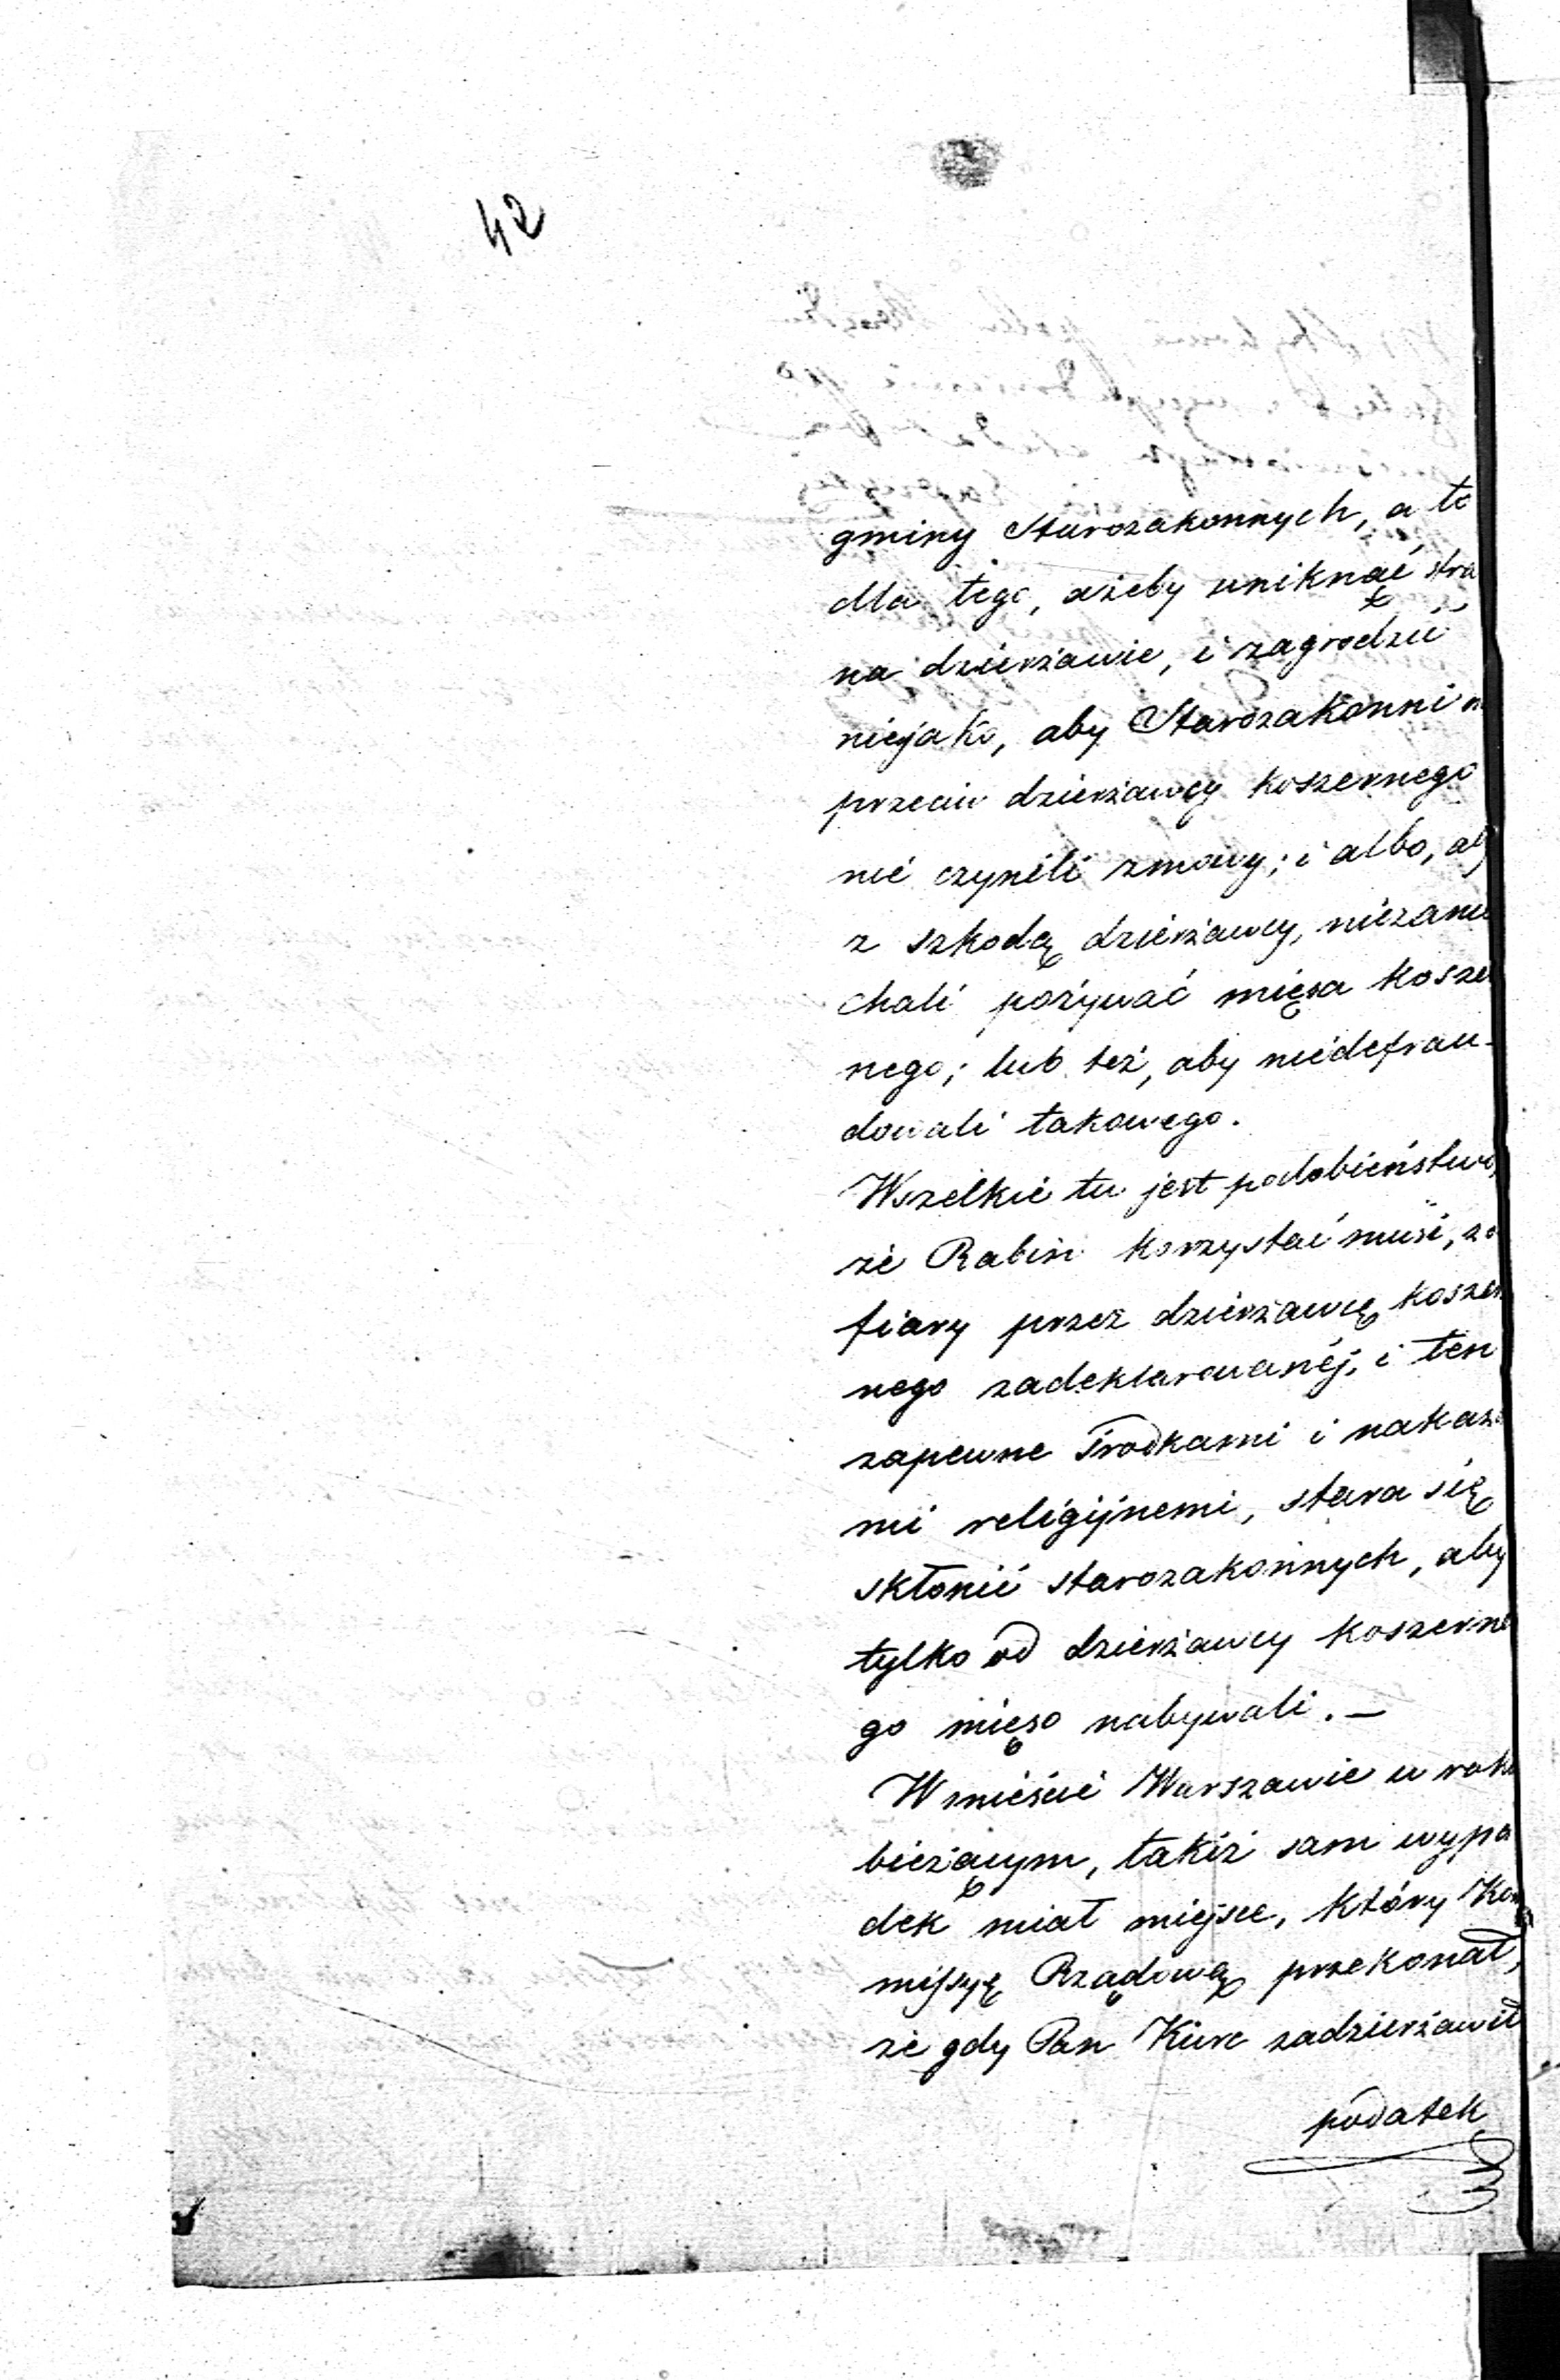 42
gminy Starozakonnych, a to
dla tego, ażeby uniknąć stra
na dzierżawie, i zagrodzić
niejako, aby Starozakonni n
przeciw dzierżawcy koszernego
nie czynili zmowy; i albo, aby
z szkodą dzierżawcy, niezanie
chali pożywać mięsa kosze
nego; lub też, aby niedefrau-
dowali takowego.
Wszelkie tu jest podobieństwo,
że Rabin korzystać musi, z o
fiary przez dzierżawcę koszer
nego zadeklarowanéj, i ten
zapewne środkami i nakaza
mi religijnemi, stara się
skłonić starozakonnych, aby
tylko od dzierżawcy koszerne
go mięso nabywali. —
W mieście Warszawie w roku
bieżącym, takiż sam wypa
dek miał miejsce, który Kom
missyę Rządową przekonał,
że gdy Pan Kiurc zadzierżawił
podatek